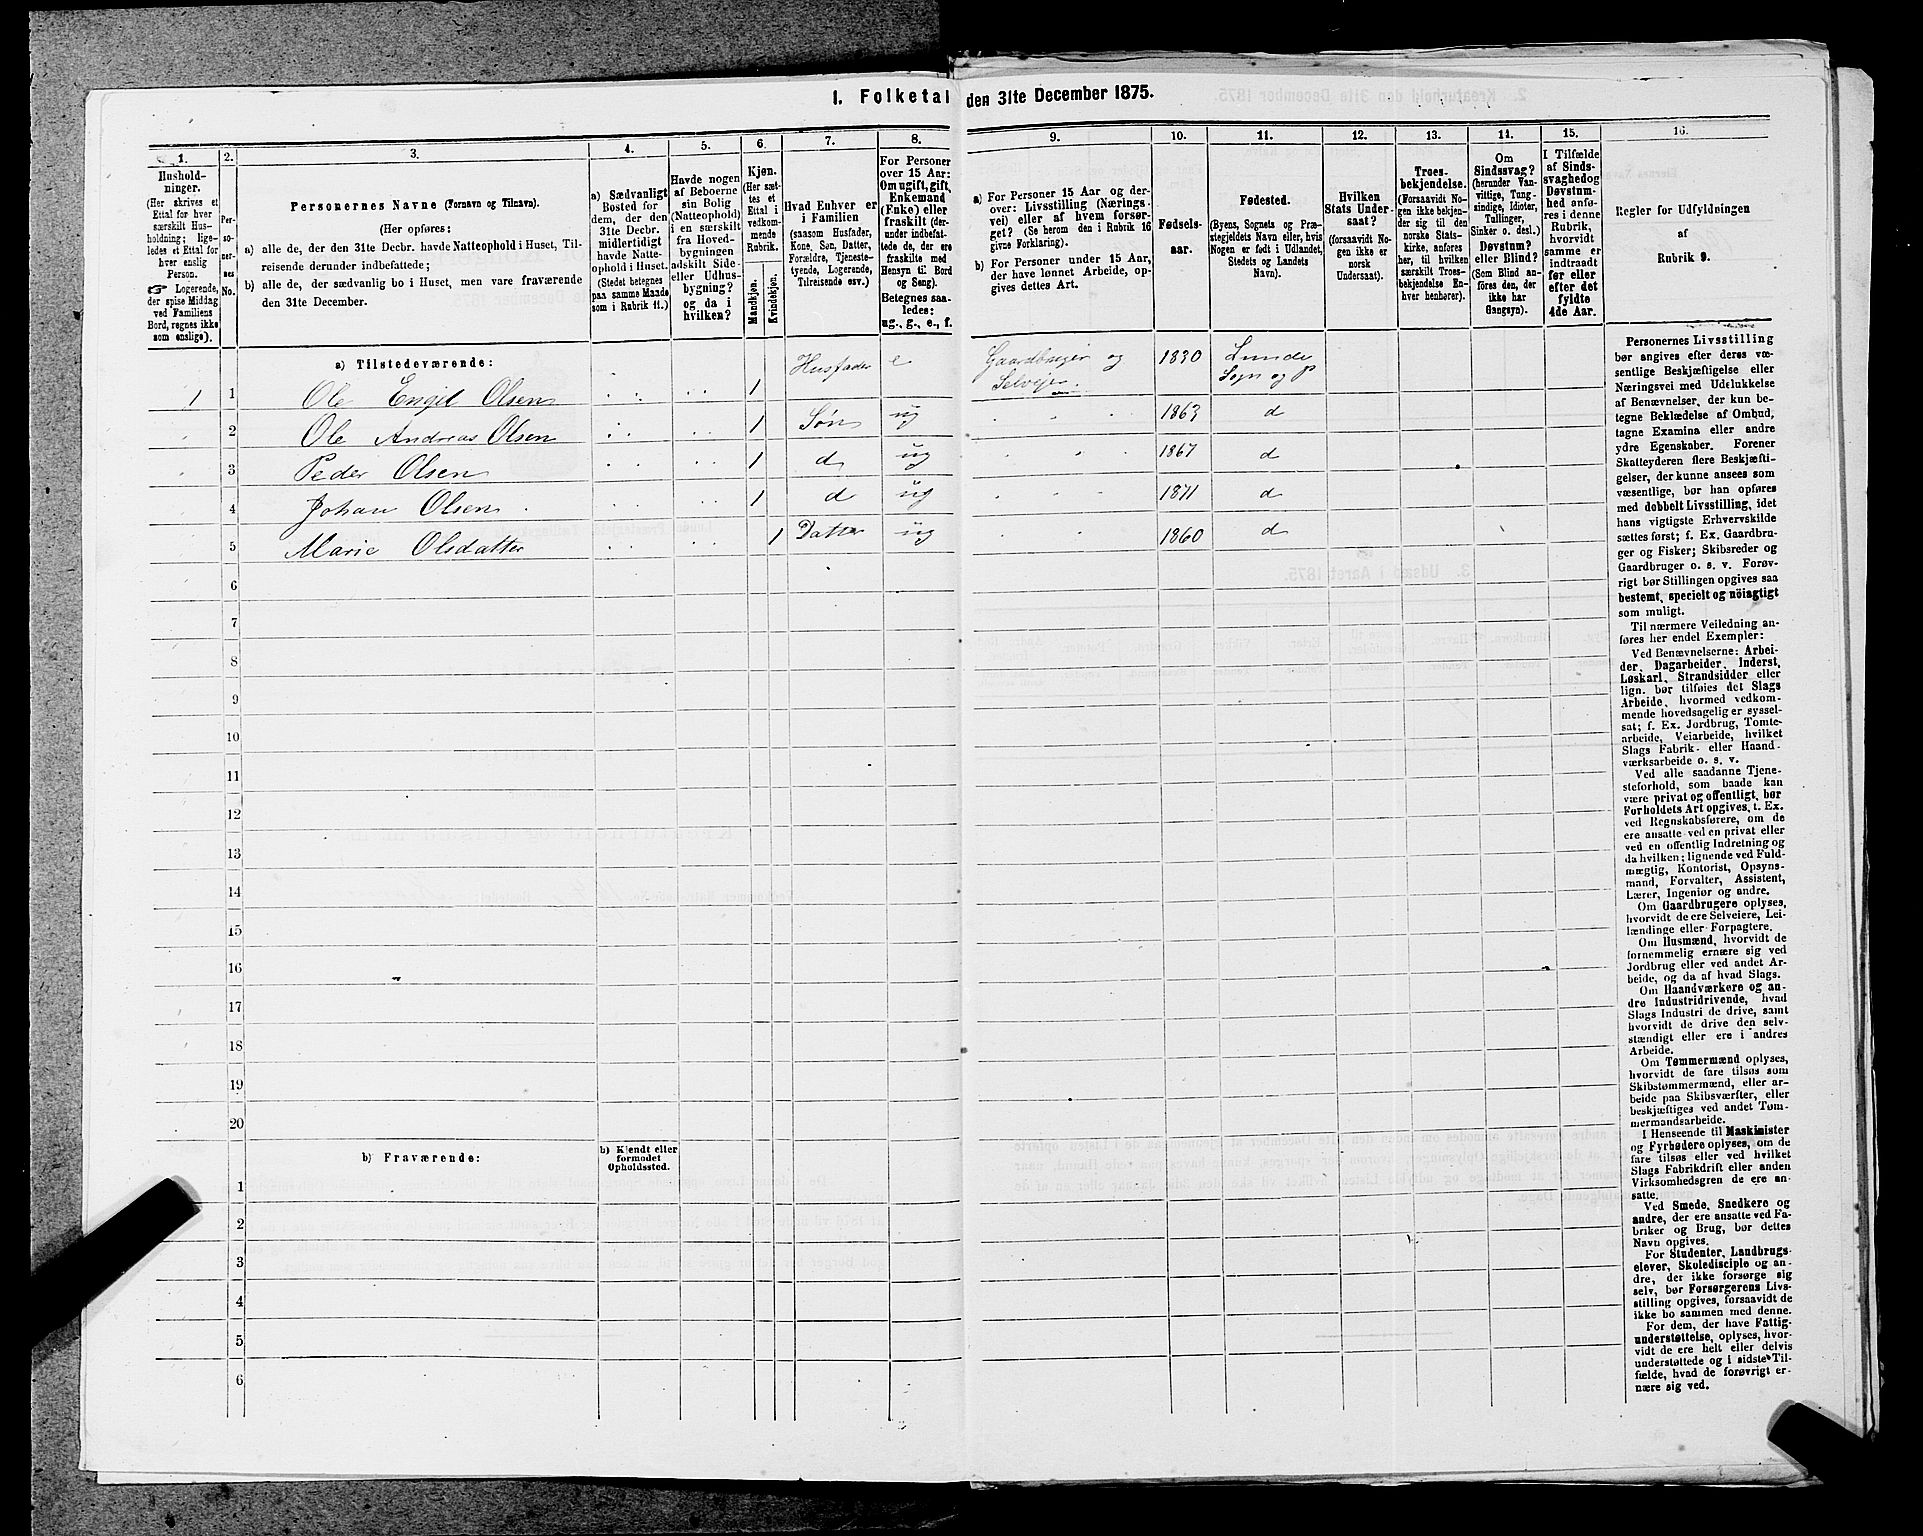 1. Folketal den 31te December 1875.
1. 2. 3. 4. 5. 6. 7. 8. 9. 10. 11. 12. 13. 14. 15. 16.
Hushold-
ninger.
(Her skrives et
Ettal for hver
særskilt Hus-
holdning; lige-
ledes et Ettal for
hver enslig
Person.
☞ Logerende,
der spise Middag
ved Familiens
Bord, regnes ikke
som enslige).
Per-
so-
ner-
nes
No.
Personernes Navne (Fornavn og Tilnavn).
(Her opføres:
a) alle de, der den 31te Decbr. havde Natteophold i Huset, Til-
reisende derunder indbefattede;
b) alle de, der sædvanlig bo i Huset, men vare fraværende
den 31te December.
a) Sædvanligt
Bosted for
dem, der den
31te Decbr.
midlertidigt
havde Natte-
ophold i Huset.
(Stedet betegnes
paa samme Maade
som i Rubrik 11.)
Havde nogen
af Beboerne
sin Bolig
(Natteophold)
i en særskilt
fra Hoved-
bygningen
adskilt Side-
eller Udhus-
bygning?
og da i
hvilken?
Kjøn.
(Her sæt-
tes et
Ettal i
vedkom-
mende
Rubrik.
Mandkjøn.
Kvindekjøn.
Hvad Enhver er
i Familien
(saasom Husfader,
Kone, Søn, Datter,
Forældre, Tjeneste-
tyende, Logerende,
Tilreisende osv.)
For Personer
over 15 Aar:
Om ugift, gift,
Enkemand
(Enke) eller
fraskilt (der-
under indbefat-
tede de, der ere
fraskilte med
Hensyn til Bord
og Seng).
Betegnes saa-
ledes:
ug., g., e., f.
a) For Personer 15 Aar og der-
over: Livsstilling (Nærings-
vei) eller af hvem forsør-
get? (Se herom den i Rubrik 16
givne Forklaring).
b) For Personer under 15 Aar,
der have lønnet Arbeide, op-
gives dettes Art.
Fødsels-
aar.
Fødested.
(Byens, Sognets og Præ-
stegjeldets Navn eller, hvis
Nogen er født i Udlandet,
Stedets og Landets
Navn).
Hvilken
Stats Under-
saat?
(forsaavidt No-
gen ikke er
norsk
Undersaat).
Troes-
bekjendelse.
(Forsaavidt No-
gen ikke bekjen-
der sig til den
norske Stats-
kirke, anføres
her, til hvilken
særskilt Troes-
bekjendelse En-
hver henhører).
Om
Sindssvag?
(herunder Van-
vittige, Tung-
sindige, Idioter,
Tullinger,
Sinker o. desl.)
Døvstum?
eller Blind?
(Som Blind an-
føres den, der
ikke har
Gangsyn).
I Tilfælde
af Sinds-
svaghed og
Døvstum-
hed anfø-
res i denne
Rubrik,
hvorvidt
samme er
indtraadt
før eller
efter det
fyldte
4de Aar.
Regler for Udfyldningen
af
Rubrik 9.
a) Tilstedeværende:
1 1 Ole Engil Olsen 1 Husfader e Gaardbruger og Selveier 1830 Lunde Sogn og P
2 Ole Andreas Olsen 1 Søn ug 1863 d
3 Peder Olsen 1 d ug 1867 d
4 Johan Olsen 1 d ug 1871 d
5 Marie Olsdatter 1 Datter ug 1860 d
6
7
8
9
10
11
12
13
14
15
16
17
18
19
20
b) Fraværende:
b) Kjendt eller
formodet
Opholdssted.
1
2
3
4
5
6
Personernes Livsstilling
bør angives efter deres væ-
sentlige Beskjæftigelse eller
Næringsvei med Udelukkelse
af Benævnelser, der kun be-
tegne Beklædelse af Ombud,
tagne Examina eller andre
ydre Egenskaber. Forener
Skatteyderen flere Beskjæfti-
gelser, der kunne ansees som
væsentlige, bør han opføres
med dobbelt Livsstilling, idet
hans vigtigste Erhvervskilde
sættes først; f. Ex. Gaardbru-
ger og Fisker; Skibsreder og
Gaardbruger o. s. v. Forøv-
rigt bør Stillingen opgives saa
bestemt, specielt og nöiagtigt
som muligt.
Til nærmere Veiledning an-
føres her endel Exempler:
Ved Benævnelserne: Arbei-
der, Dagarbeider, Inderst,
Løskarl, Strandsidder eller
lign. bør tilføies det Slags
Arbeide, hvormed vedkom-
mende hovedsagelig er syssel-
sat; f. Ex. Jordbrug, Tomte-
arbeide, Veiarbeide, hvilket
Slags Fabrik- eller Haand-
værksarbeide o. s. v.
Ved alle saadanne Tjene-
steforhold, som baade kan
være privat og offentligt, bør
Forholdets Art opgives, t. Ex.
ved Regnskabsførere, om de
ere ansatte ved en privat eller
ved en offentlig Indretning og
da hvilken; lignende ved Fuld-
mægtig, Kontorist, Opsyns-
mand, Forvalter, Assistent,
Lærer, Ingeniør og andre.
Om Gaardbrugere oplyses,
hvorvidt de ere Selveiere, Lei-
lændinge eller Forpagtere.
Om Husmænd, hvorvidt de
fornemmelig ernære sig ved
Jordbrug eller ved andet Ar-
beide, og da af hvad Slags.
Om Haandværkere og an-
dre Industridrivende, hvad
Slags Industri de drive, samt
hvorvidt de drive den selv-
stændigt eller ere i andres
Arbeide.
Om Tømmermænd oplyses,
hvorvidt de fare tilsøs som
Skibstømmermænd, eller ar-
beide paa Skibsværfter, eller
beskjæftiges ved andet Tøm-
mermandsarbeide.
I Henseende til Maskinister
og Fyrbødere oplyses, om de
fare tilsøs eller ved hvilket
Slags Fabrikdrift eller anden
Virksomhedsgren de ere an-
satte.
Ved Smede, Snedkere og
andre, der ere ansatte ved Fa-
briker og Brug, bør dettes
Navn opgives.
For Studenter, Landbrugs-
elever, Skoledisciple og an-
dre, der ikke forsørge sig
selv, bør Forsørgerens Livs-
stilling opgives, forsaavidt de
ikke bo sammen med denne.
For dem, der have Fattig-
understøttelse, oplyses, hvor-
vidt de ere helt eller delvis
understøttede og i sidste Til-
fælde, hvad de forøvrigt er-
nære sig ved.